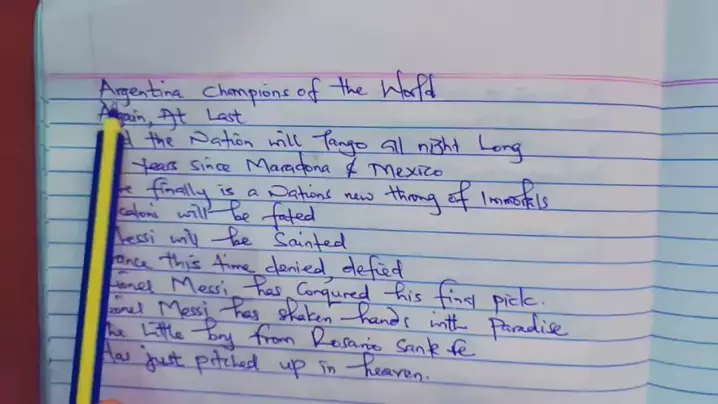 Argentina Champions of the World
Again, At Last
the Nation will Tango all night Long
years since Maradona & Mexico
finally is a Nations new throng of Immortals
will be fated
Messi will be Sainted
this time denied, defied
Messi has Conqured his final pick.
Messi has shaken hands with Paradise
Little boy from Rosario Sante fe
Has just pitched up in heaven.